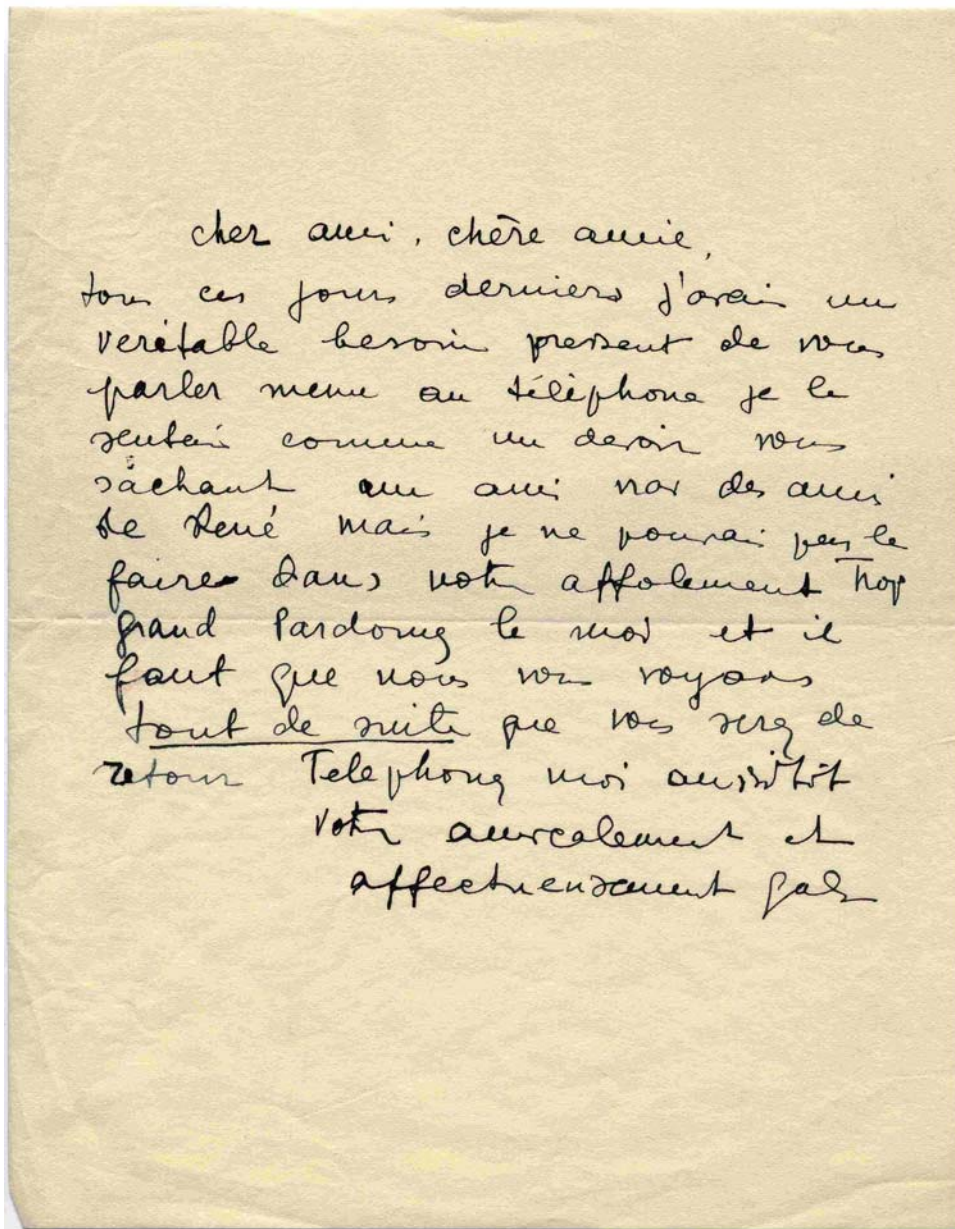 cher ami, chère amie,
tous ces jours derniers j'avais un
veritable besoin pressent de vous
parler meme au télèphone je le
sentais comme un devoir vous
sachant ami des amis
de René mais je ne pouvais pas le
faire dans notre affolement Trop
grand Pardonez le moi et il
faut que nous vous voyons
tout de suite que vous serez de
retour Telephonez moi aussitôt
Votre amicalement et
affectueusement gala